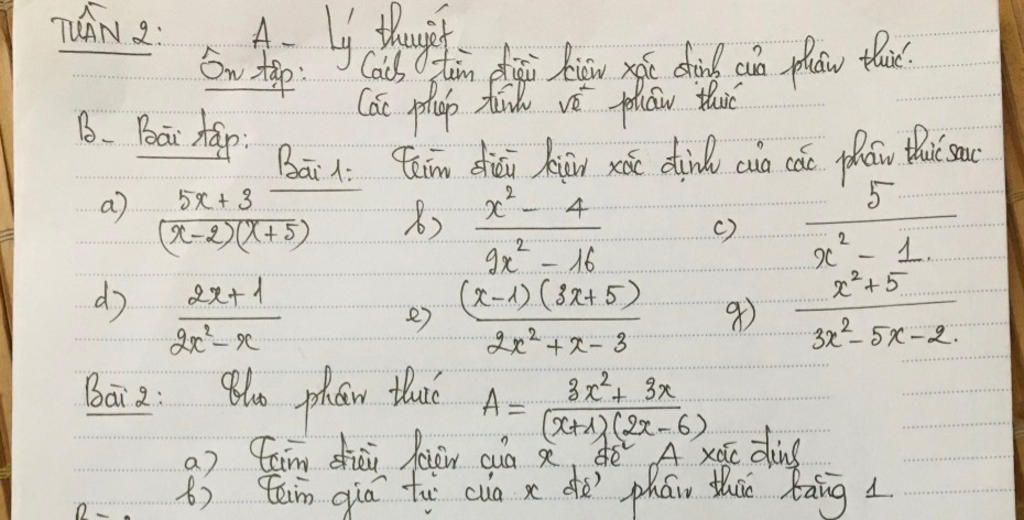 TUẦN 2: A - Lý thuyết
Ôn tập: Cách tìm điều kiện xác định của phân thức.
Các phép tính về phân thức
B - Bài tập:
Bài 1: Tìm điều kiện xác định của các phân thức sau
a) (5x + 3)/((x-2)(x+5)) b) (x² - 4)/(9x² - 16) c) 5/(x² - 1)
d) (2x+1)/(2x² - x) e) ((x-1)(3x+5))/(2x² + x - 3) g) (x²+5)/(3x² - 5x - 2)
Bài 2: Cho phân thức A = (3x² + 3x)/((x+1)(2x-6))
a) Tìm điều kiện của x để A xác định
b) Tìm giá trị của x để phân thức bằng 1